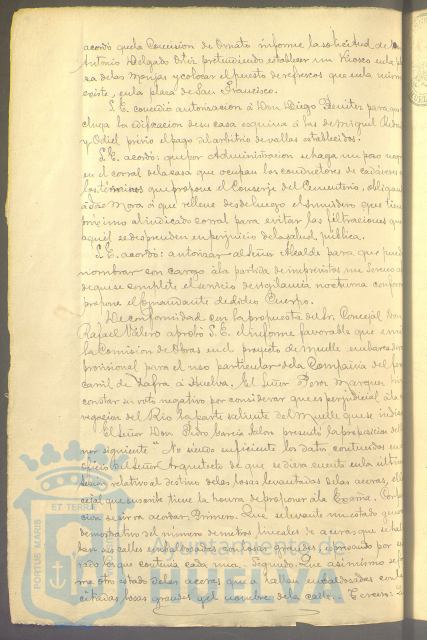 acordó que la Comision de Ornato informe la solicitud de D.
Antonio Delgado Ortiz pretendiendo establecer un Kiosco en la pla
za de las Monjas y colocar el puesto de refrescos que en la misma
existe, en la plaza de San Francisco.
S.E. concedió autorizacion á Don Diego Benitez para que
cluya la edificacion de su casa esquina á las de Miguel Redon
y Odiel previo el pago del arbitrio de vallas establecidos.
S.E. acordó: que por Administracion se haga un pozo negro
en el corral de la casa que ocupan los conductores de cadáveres en
los términos que propone el Conserje del Cementerio, obligando
á Mora á que rellene desde luego el sumidero que tiene
próximo al indicado corral para evitar las filtraciones que
aquel se desprenden en perjuicio de la salud pública.
S.E. acordó: autorizar al Señor Alcalde para que pueda
nombrar con cargo á la partida de imprevistos un Sereno a
de que se complete el servicio de vigilancia nocturna conforme
propone el Comandante de dicho Cuerpo.
De conformidad con la propuesta del Sr. Concejal Don
Rafael Valero aprobó S.E. el informe favorable que emi
la Comision de Obras en el proyecto de muelle embarcadero
provisional para el uso particular de la Compañia del ferro
carril de Zafra á Huelva. El Señor Perez Marquez hizo
constar su voto negativo por considerar que es perjudicial á la na
vegacion del Rio la parte saliente del Muelle que se indica
El Señor Don Pedro Garcia Jalon presentó la proposicion del te
nor siguiente "No siendo suficiente los datos contenidos en el
oficio del Señor Arquitecto de que se diera cuenta en la última
sesion relativo al destino de las losas levantadas de las aceras, el Con
cejal que suscribe tiene la honra de proponer á la Excma. Corpora
cion se sirva acordar. Primero: Que se levante un estado que
demostrativo del número de metros lineales de aceras que se hallan
las calles enlosadas con losas grandes, expresando por se
rado los que contiene cada una. Segundo: Que asi mismo se for
me otro estado de las aceras que se hallan enlosadas con las
citadas losas grandes y el nombre de la calle. Tercero:
PORTUS MARIS ET TERRAE
Ayuntamiento de
HUELVA